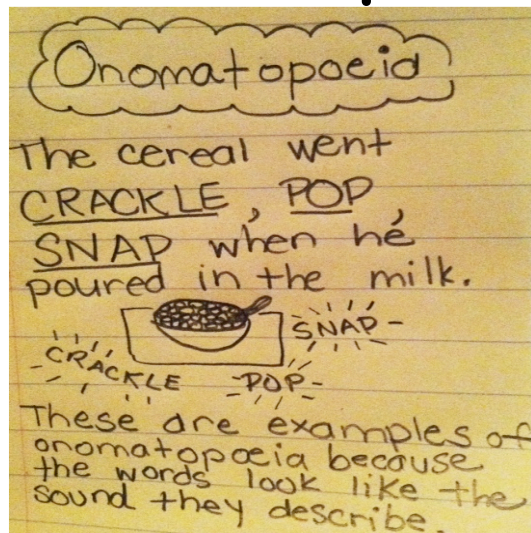 Onomatopoeia
The cereal went
CRACKLE, POP,
SNAP when he
poured in the milk.
SNAP
CRACKLE
POP
These are examples of
onomatopoeia because
the words look like the
sound they describe.